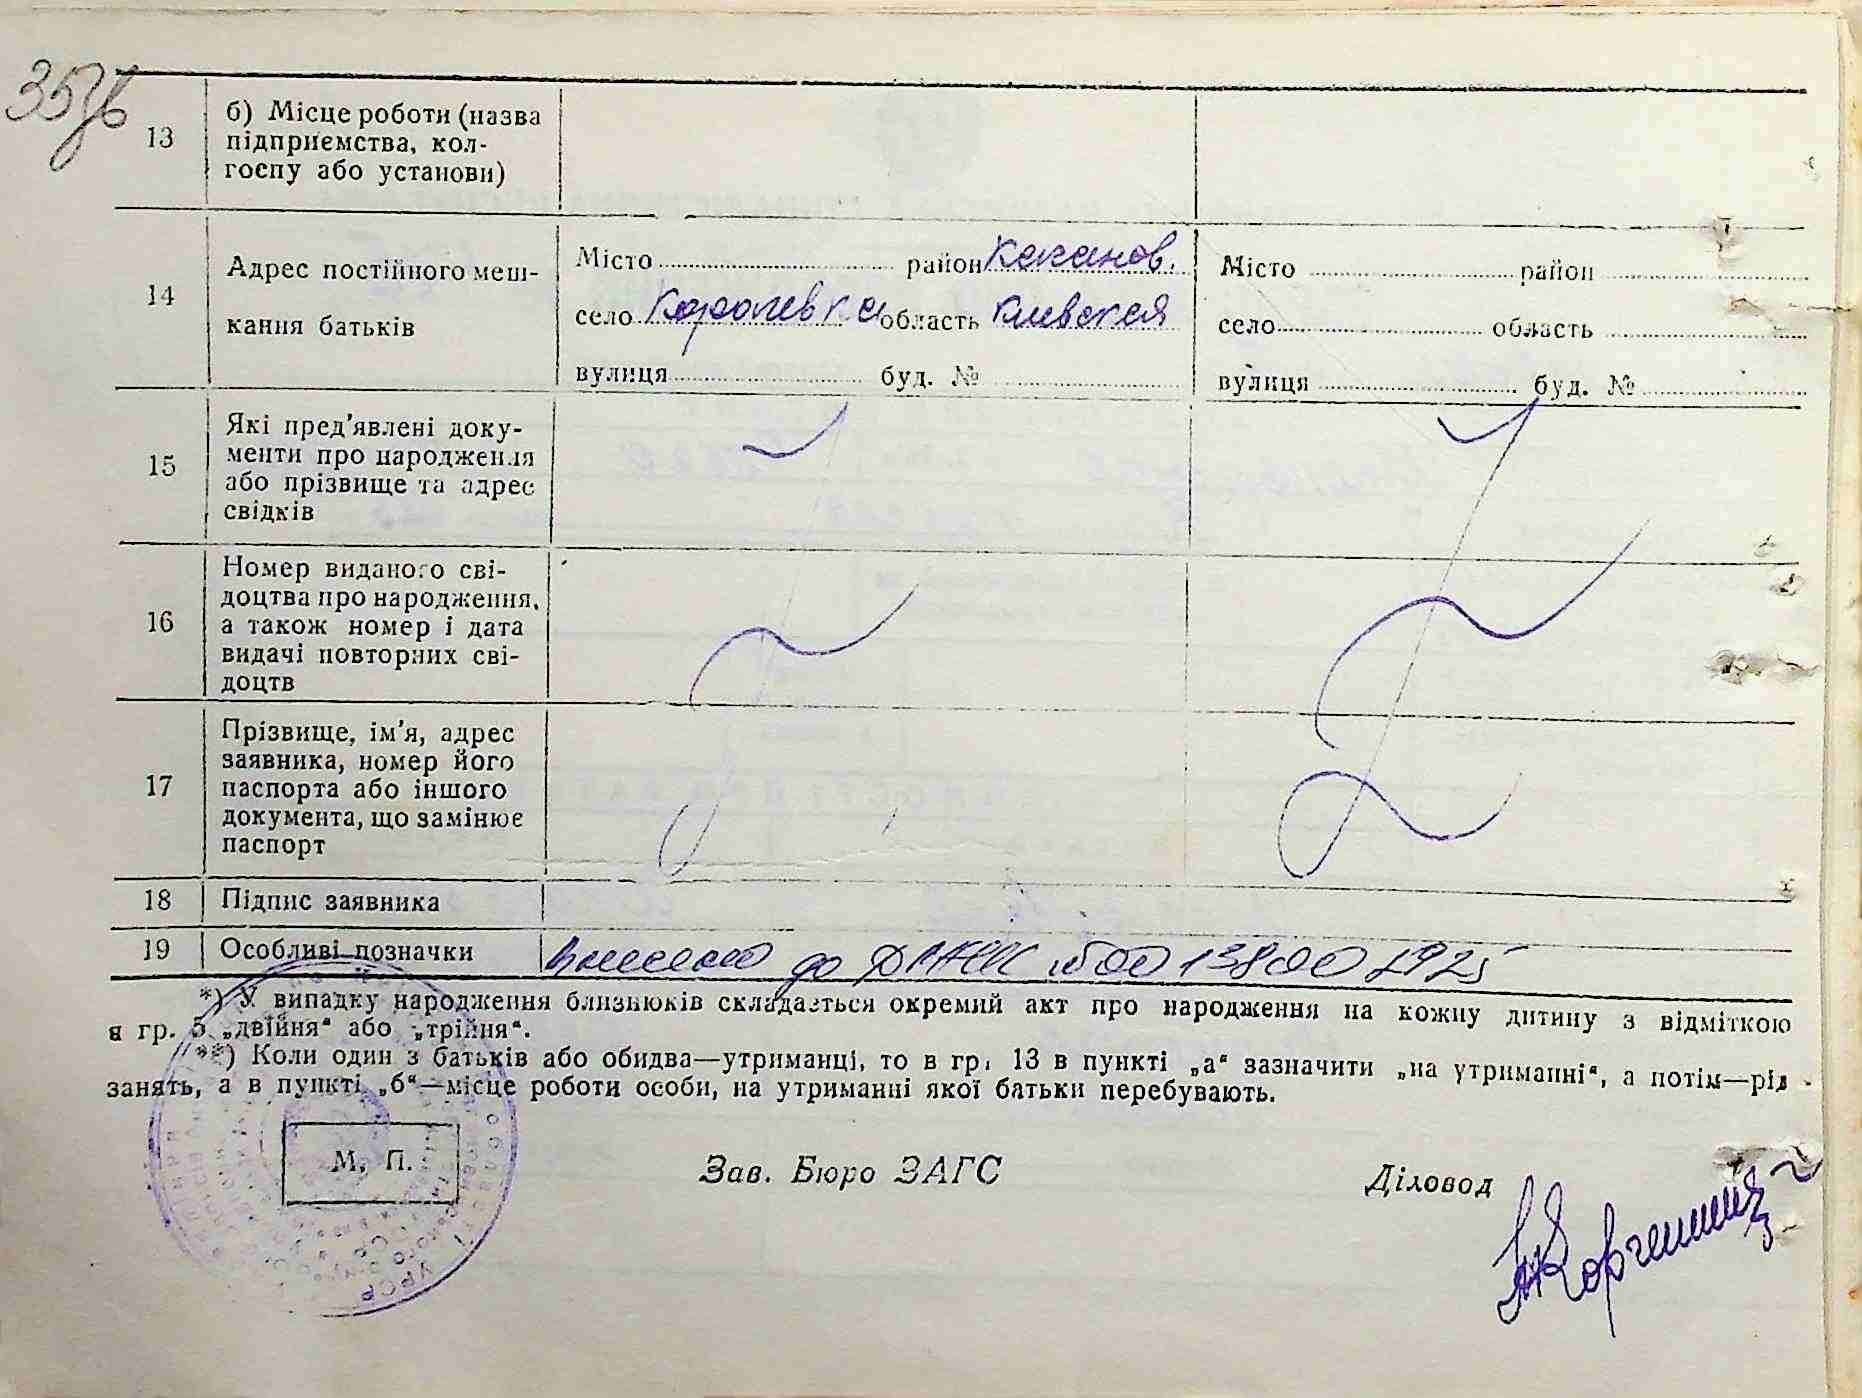 35зв
13
б) Місце роботи (назва
підприємства, кол-
госпу або установи)
14
Адрес постійного меш-
кання батьків
Місто район Каганов.
село область Киевская
вулиця буд. №
Місто район
село область
вулиця буд. №
15
Які пред'явлені доку-
менти про народження
або прізвище та адрес
свідків
16
Номер виданого сві-
доцтва про народження,
а також номер і дата
видачі повторних сві-
доцтв
17
Прізвище, ім'я, адрес
заявника, номер його
паспорта або іншого
документа, що замінює
паспорт
18
Підпис заявника
19
Особливі позначки
Внесено до ДРАЦС
*) У випадку народження близнюків складається окремий акт про народження на кожну дитину з відміткою
в гр. 5 „двійня“ або „трійня“.
**) Коли один з батьків або обидва—утриманці, то в гр. 13 в пункті „а“ зазначити „на утриманні“, а потім—рід
занять, а в пункті „б“—місце роботи особи, на утриманні якої батьки перебувають.
М. П.
Зав. Бюро ЗАГС
Діловод